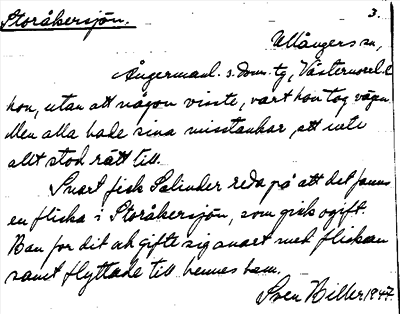 Storåkersjön.
3.
Ullångers sn,
Ångermanl. s. dom. tg, Västernorrl. l.
hon, utan att någon visste, vart hon tog vägen.
Men alla hade sina misstankar, att inte
allt stod rätt till.
Snart fick Salinder reda på att det fanns
en flicka i Storåkersjön, som gick ogift.
Han for dit och gifte sig snart med flickan
samt flyttade till hennes hem.
Sven Hiller 1947.